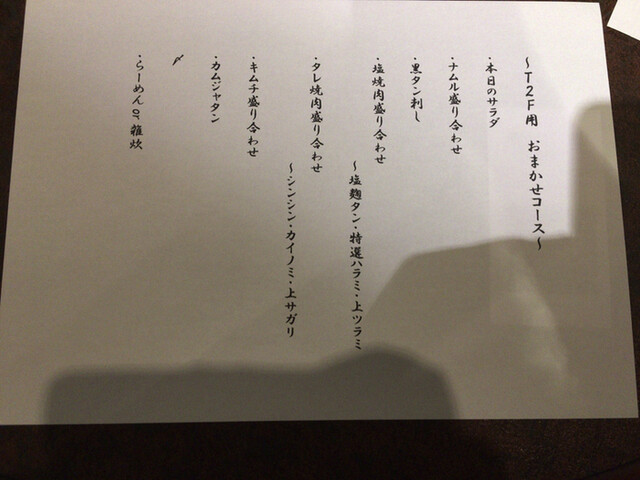 ～T2F用　おまかせコース～
・本日のサラダ
・ナムル盛り合わせ
・黒タン刺し
・塩焼肉盛り合わせ
～塩麹タン・特選ハラミ・上ツラミ
・タレ焼肉盛り合わせ
～シンシン・カイノミ・上サガリ
・キムチ盛り合わせ
・カムジャタン
〆
・らーめん or 雑炊